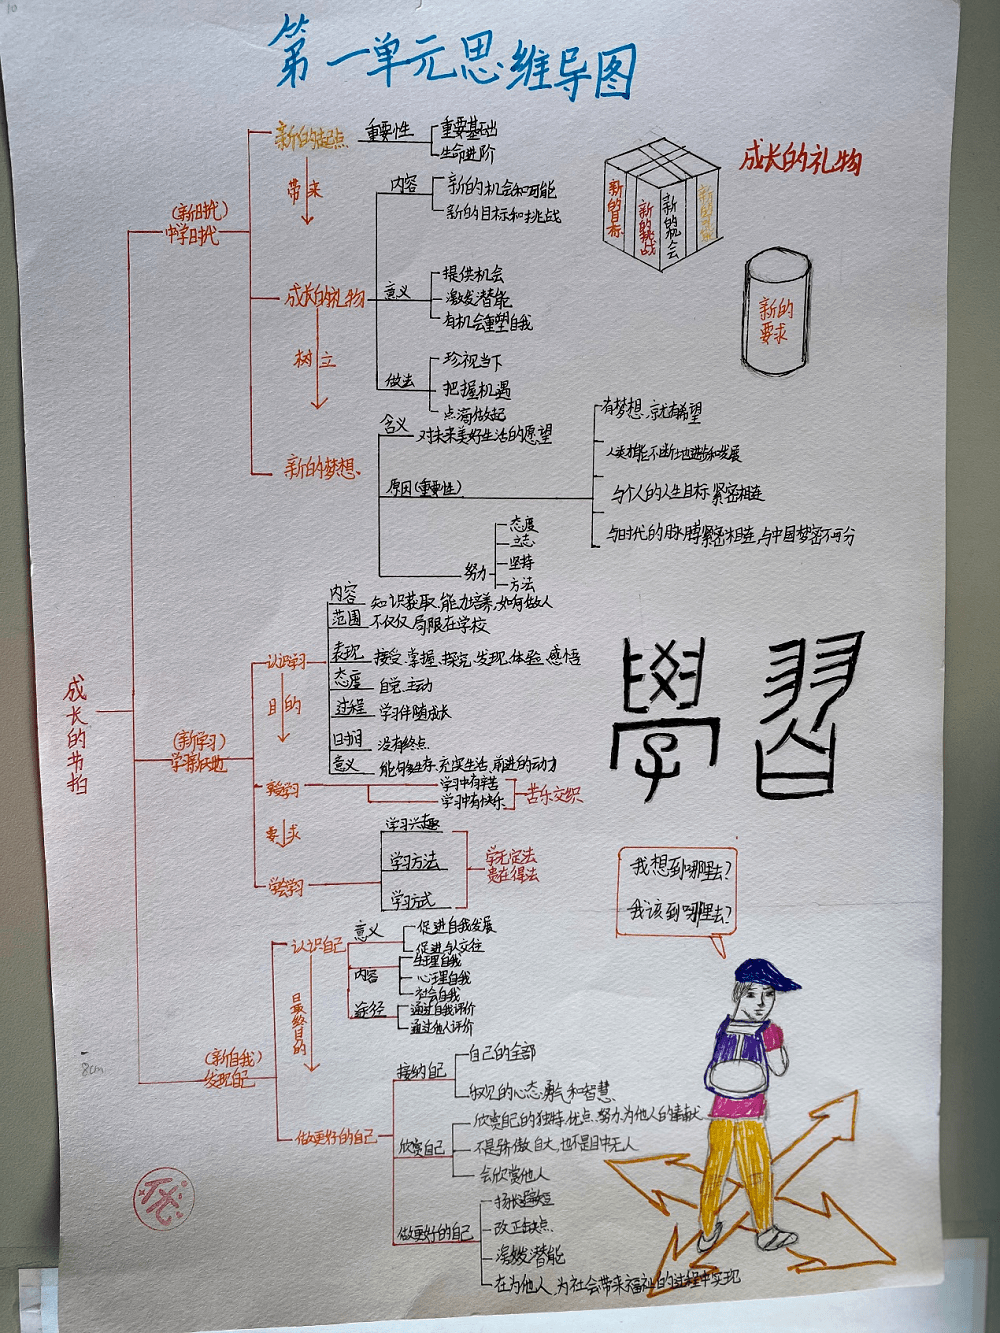 第一单元思维导图
成长的节拍
(新时代)
中学时代
新的起点
重要性
重要基础
生命进阶
带来
成长的礼物
内容
新的机会和可能
新的目标和挑战
意义
提供机会
激发潜能
有机会重塑自我
做法
珍视当下
把握机遇
点滴做起
树立
新的梦想
含义
对未来美好生活的愿望
原因(重要性)
有梦想,就有希望
人类才能不断地进步和发展
与个人的人生目标紧密相连
与时代的脉搏紧密相连,与中国梦密不可分
努力
态度
立志
坚持
方法
成长的礼物
新的目标
新的挑战
新的机会
新的
要求
(新学习)
学习新天地
认识学习
内容
知识获取,能力培养,如何做人
范围
不仅仅局限在学校
表现
接受、掌握、探究、发现、体验、感悟
态度
自觉、主动
过程
学习伴随成长
时间
没有终点
意义
能够生存,充实生活,前进的动力
目的
享受学习
学习中有辛苦
学习中有快乐
苦乐交织
要求
学会学习
学习兴趣
学习方法
学习方式
学无定法
贵在得法
學習
(新自我)
发现自己
认识自己
意义
促进自我发展
促进与人交往
内容
生理自我
心理自我
社会自我
途径
通过自我评价
通过他人评价
最终目的
做更好的自己
接纳自己
自己的全部
乐观的心态,勇气和智慧
欣赏自己
欣赏自己的独特,优点,努力,为他人的奉献
不是骄傲自大,也不是目中无人
会欣赏他人
做更好的自己
扬长避短
改正缺点
激发潜能
在为他人、为社会带来福祉的过程中实现
我想到哪里去?
我该到哪里去?
8cm